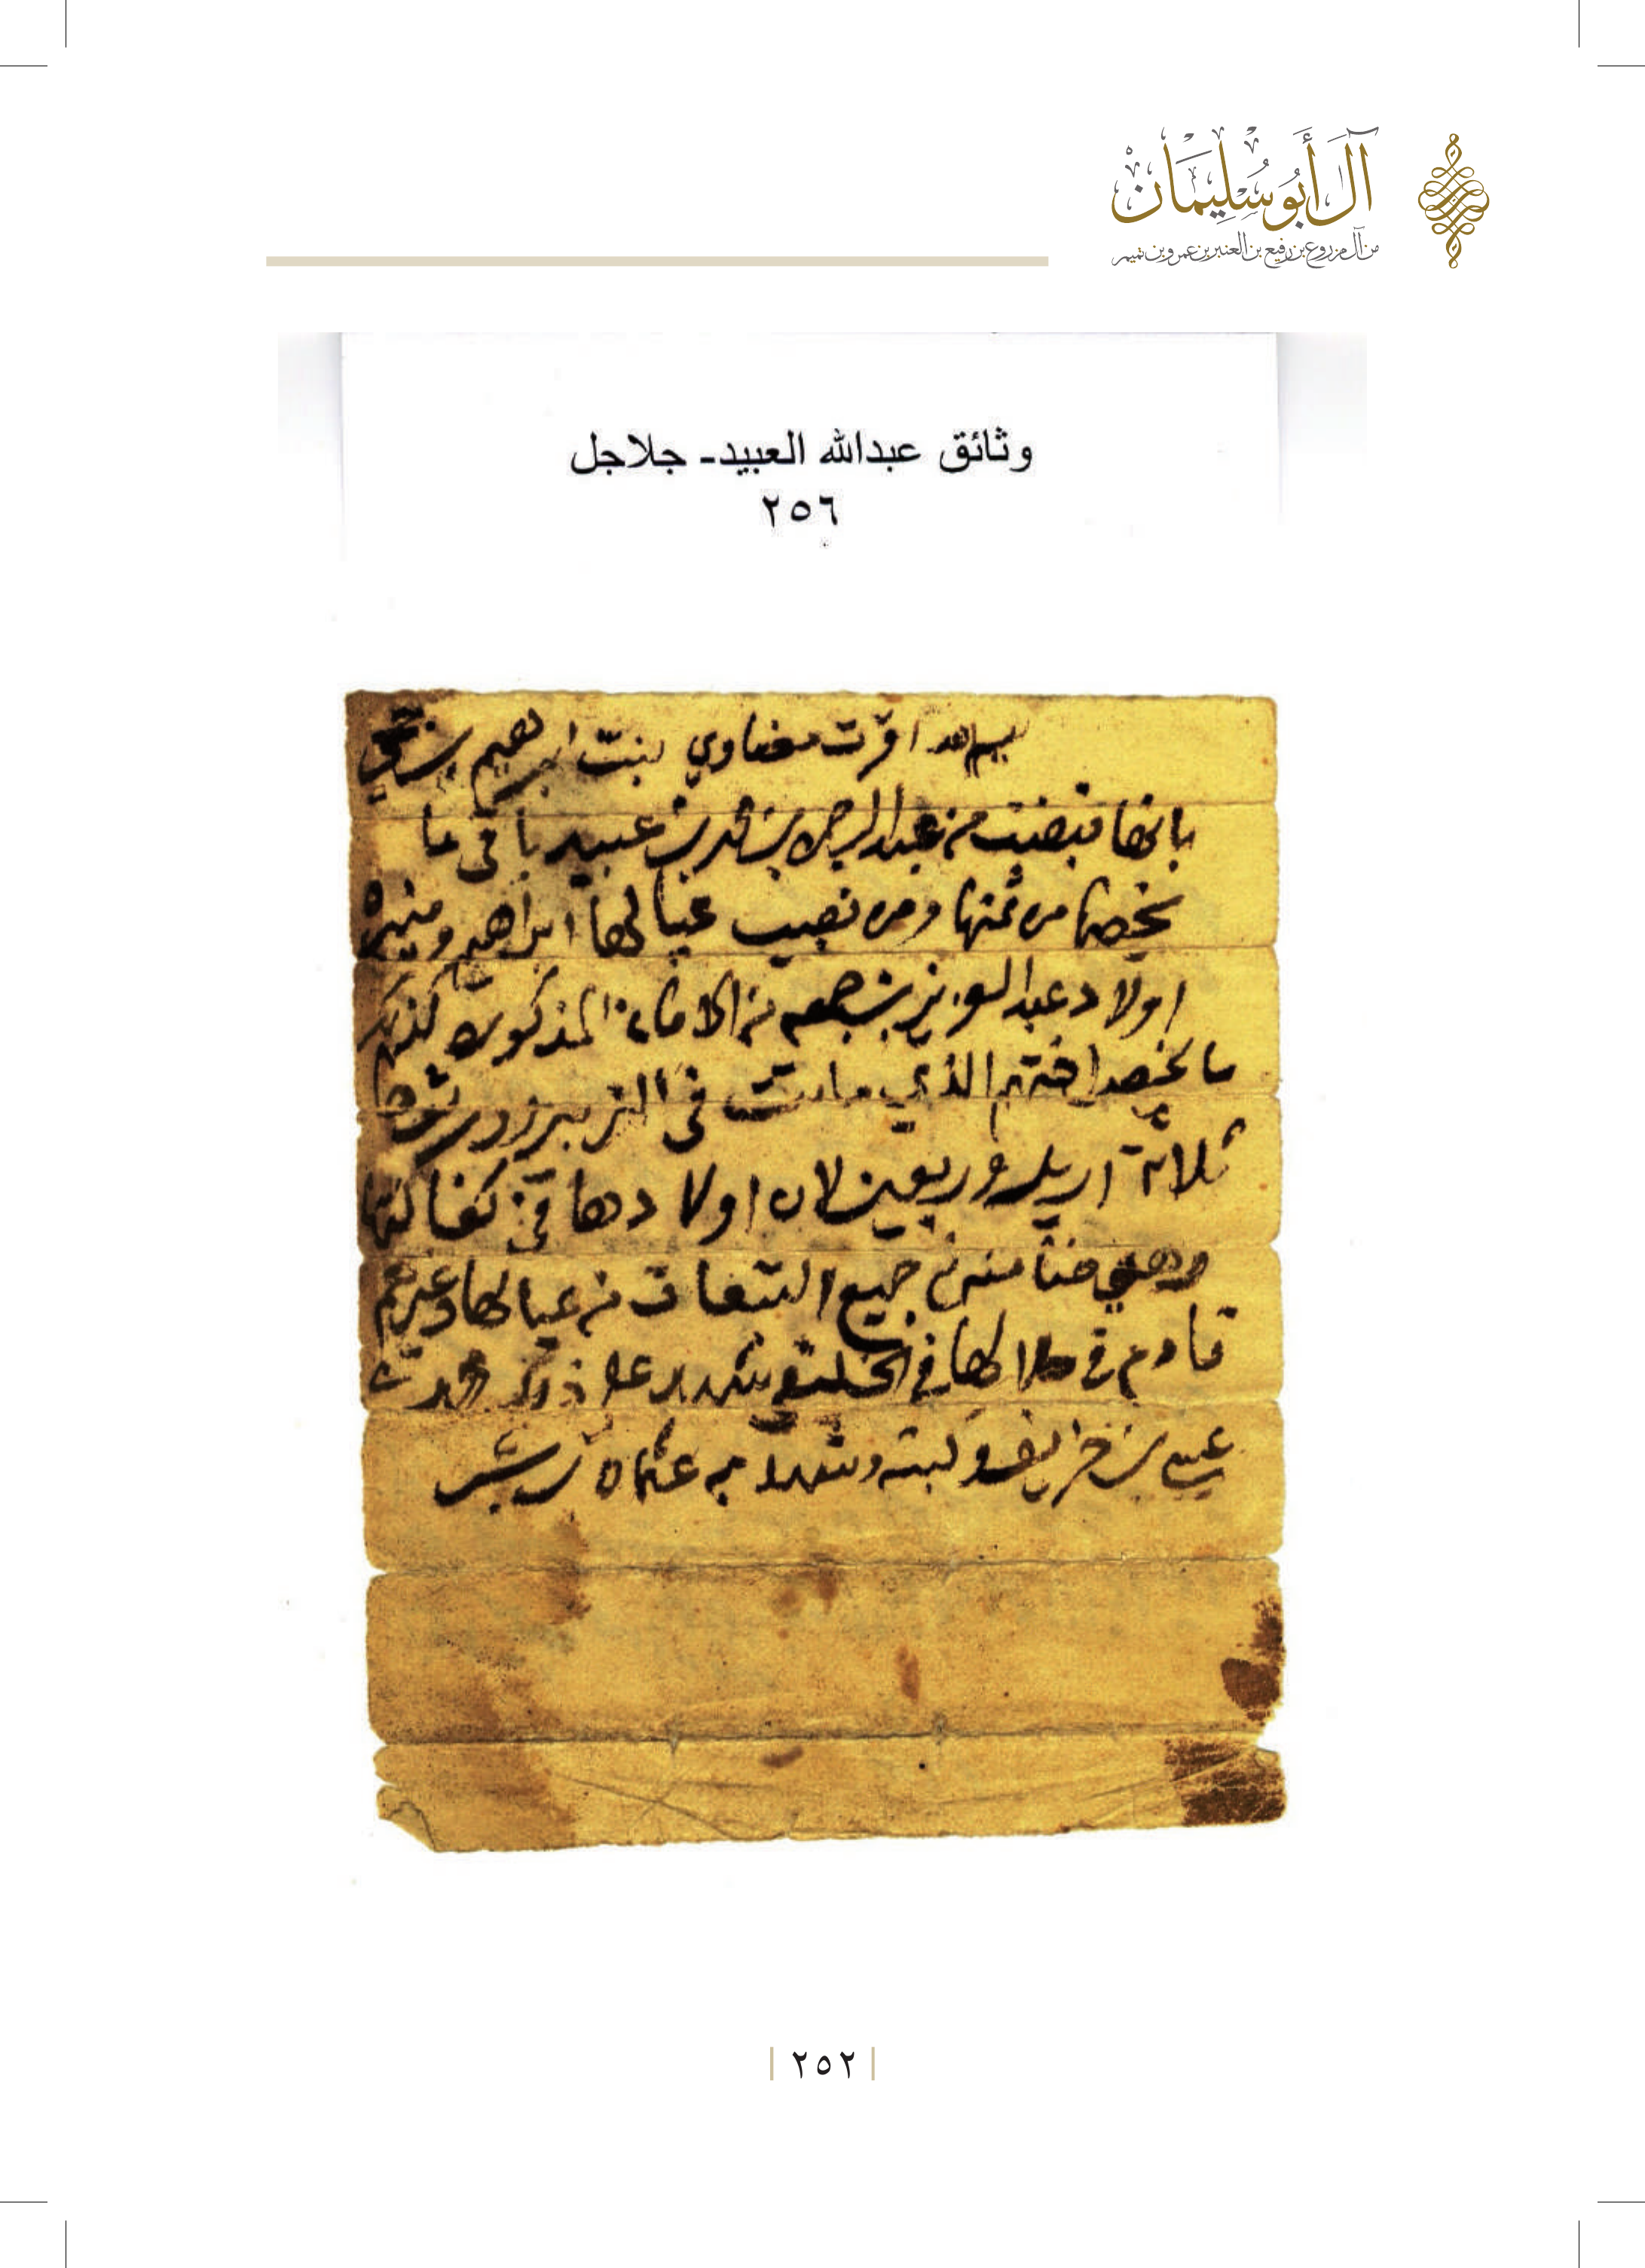 آل أَبُو سُلَيْمَان
من آل مزروع بن رفيع بن العنبر بن عمرو بن تميم
وثائق عبدالله العبيد- جلاجل
٢٥٦
بسم الله اقرت مضاوي بنت ابرهيم بن
بانها قبضت من عبدالرحمن بن محمد بن عبيد باقي ما
يخصها من ثمنها ومن نصيب عيالها ابراهيم ومنيره
اولاد عبدالعزيز بن جمعه من الامانة المذكوره كذلك
ما يخص اختهم الذي ماتت في الزبير
ثلاثة اريل وربعين لان اولادها في كفالتها
وهي من جميع من عيالها وغيرهم
مادم في على ذلك
عيسى بن وكتبه وشهد به عثمان بن
٢٥٢